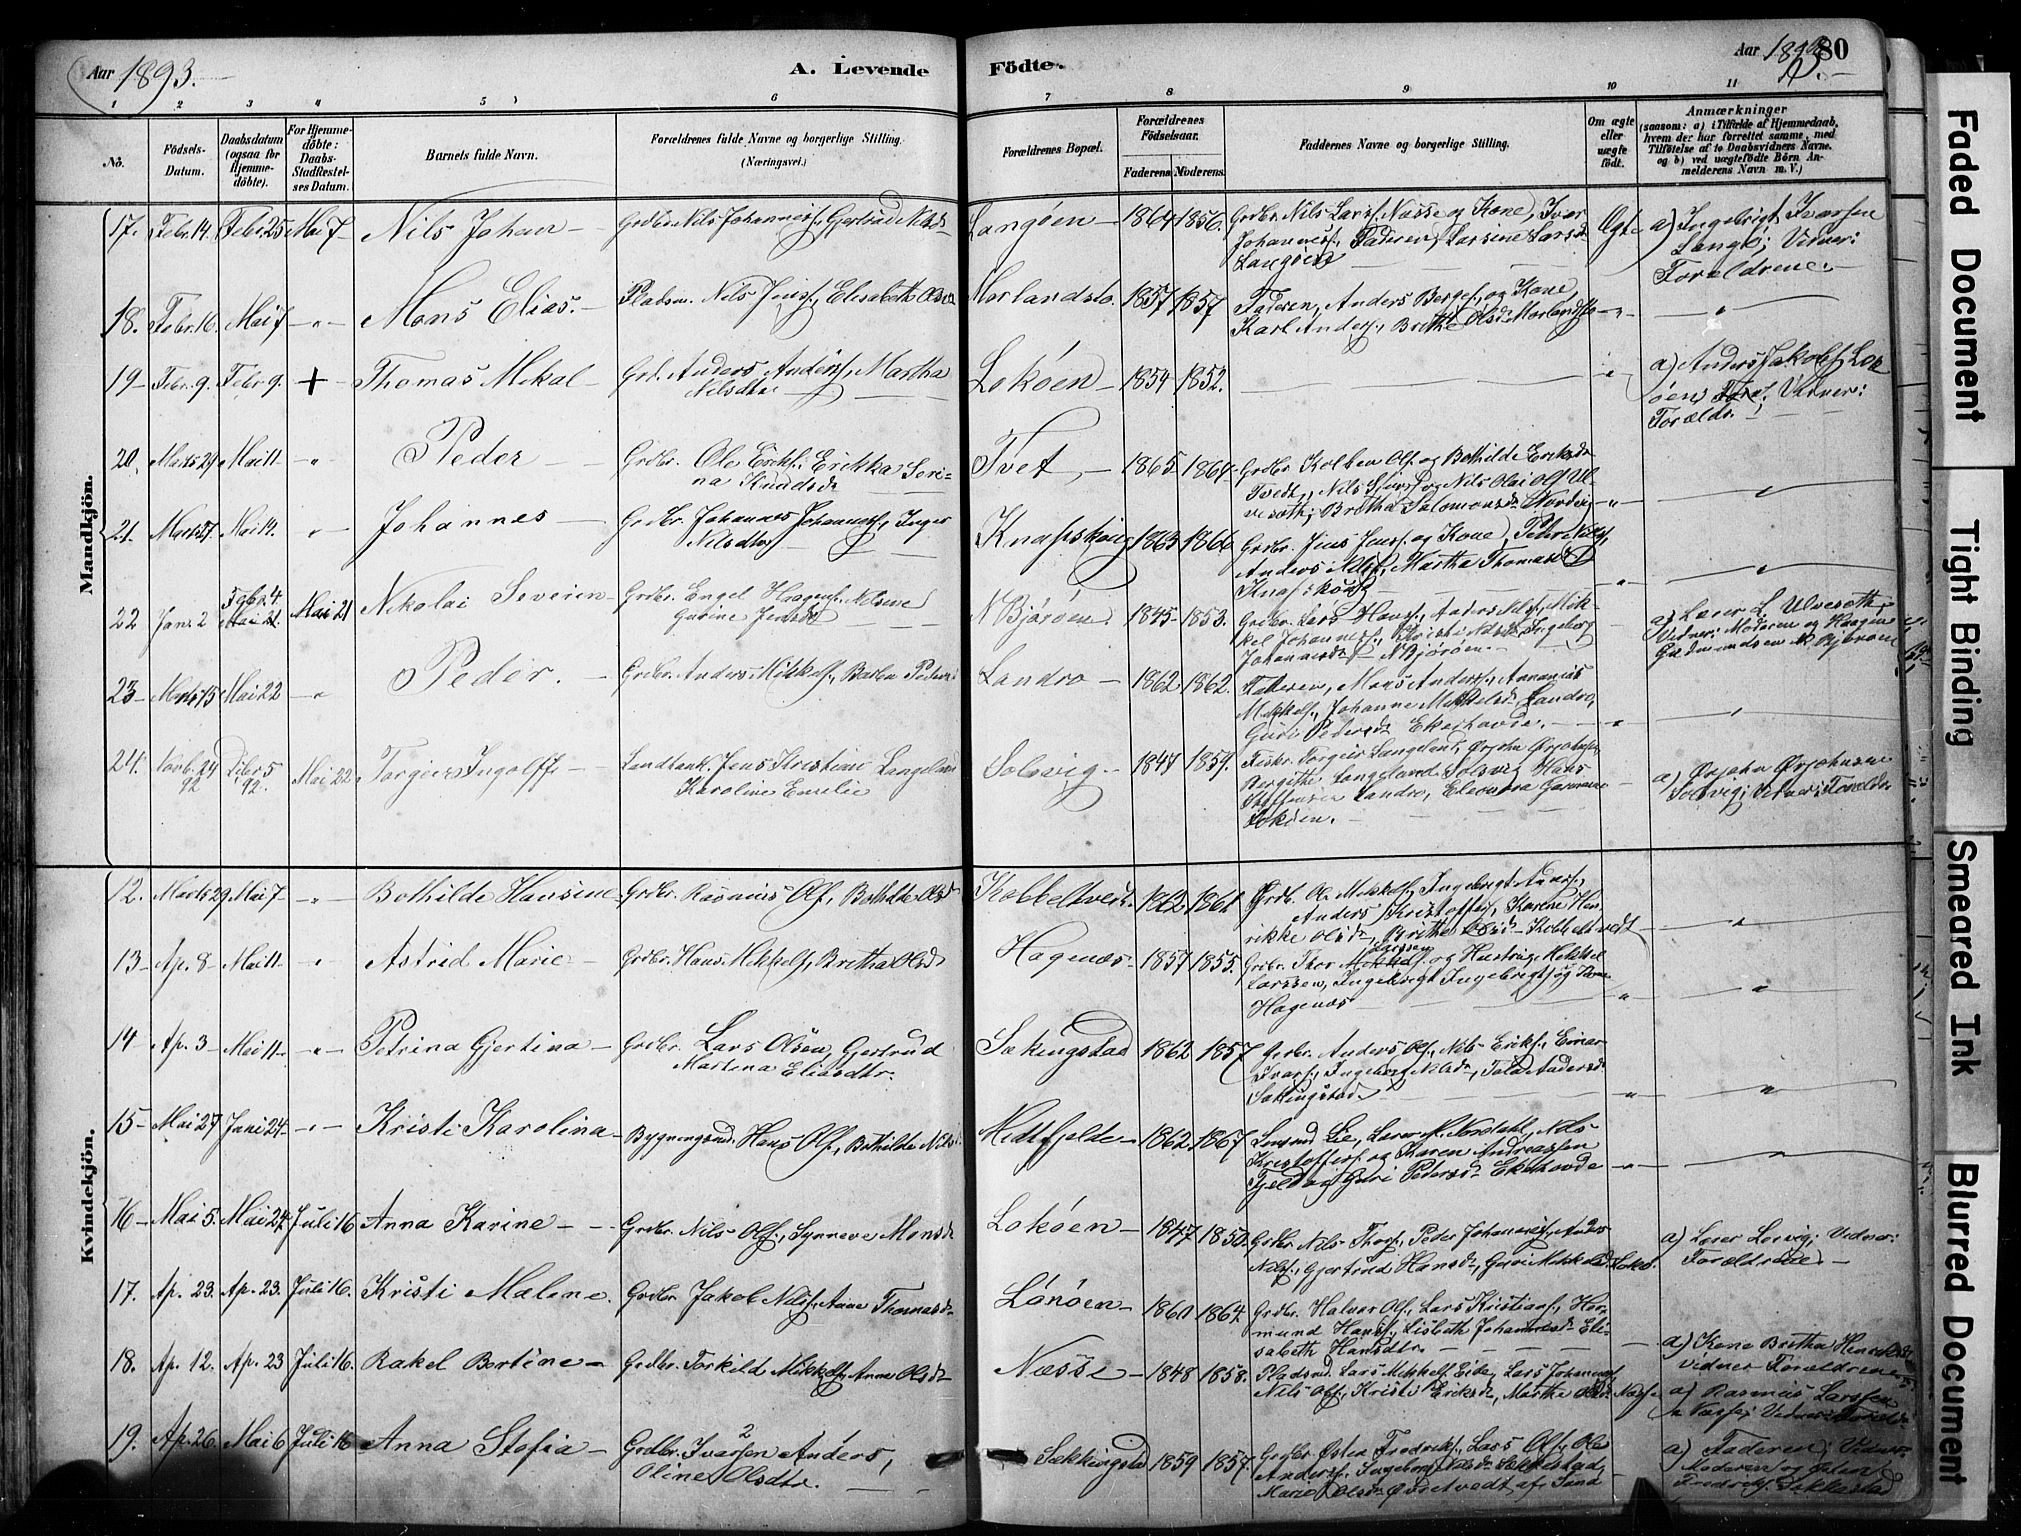 Aar 1893.
A. Levende
Födte.
Aar 1893.
80
1 2 3 4 5 6
7 8 9 10 11
No.
Födsels-
Datum.
Daabsdatum
(ogsaa for
Hjemme-
döbte).
For Hjemme-
döbte:
Daabs-
Stadfæstel-
ses Datum.
Barnets fulde Navn.
Forældrenes fulde Navne og borgerlige Stilling.
(Næringsvei.)
Forældrenes Bopæl.
Forældrenes
Födselsaar.
Faderens Moderens
Faddernes Navne og borgerlige Stilling.
Om ægte
eller
uægte
födt.
Anmærkninger
(saasom: a) i Tilfælde af Hjemmedaab,
hvem der har forrettet samme, med
Tilföielse af to Daabsvidners Navne.
og b) ved uægtefödte Börn An-
melderens Navn m. V.)
Mandkjön.
17. Febr. 14. Febr. 25 Mai 7 Nils Johan Grdbr. Nils Johannesf., Gjertrud Nilsd. Langöen 1864 1856. Grdbr. Nils Larsf. Næsse og Kone, Ivar
Johannesf., Faderen, Larsine Larsd.
Langöen
Ægte a) Ingebrigt Ivarsen
Langö; Vidner:
Forældrene.
18. Febr. 16. Mai 7 Mons Elias. Pladsm. Nils Jensf., Elisabeth Olsd. Morlandsto. 1857 1857 Faderen, Anders Bergef., og Kone,
Karl Andersf., Brithe Olsd. Morlandsto
19 Febr. 9. Febr. 9. + Thomas Mikal Grd. Anders Andersf., Martha
Nilsdtr. Loköen 1854 1852. a) Anders Jakobsf. Lok
öen, Vidner:
Foræld.
20. Marts 29 Mai 11 Peder Grdbr. Ole Eriksf., Erikka Seri-
na Knudsd. Tvet 1865 1864. Grdbr. Kolben Olsf. og Bothilde Eriksd.
Tvedt, Nils og Nils Olai Olsf. Ul-
vesæth; Britha Salomonsd. Nordvig
21. Marts 27. Mai 14. Johannes Grdbr. Johannes Johannesf., Inger
Nilsdtr. Knapskoug 1863 1866 Grdbr. Jens Jensf. og Kone, Peder Nilsf.,
Anders Nilsf., Martha Thomasd.
Knapskoug
22 Jan. 2 Febr. 4.
Mai 21. Mai 21 Nikolai Severin Grdbr. Engel Haagensf., Nilsine
Gurine Jensd. N Björöen. 1845 1853. Grdbr. Lars Hansf., Anders Nilsf., Mik-
kel Johannesf., Kristi Nilsd., Ingeborg
Johannesd. N Björöen.
a) Lærer L. Ulvesæth;
Vidner: Moderen og Haagen
Guldmundsen N Björöen
23 Marts 15 Mai 22 Peder. Grdbr. Anders Mikkelsf., Barbra Pedersd. Landro 1862 1862. Faderen, Mons Andersf., Annanias
Mikkelsf., Johanne Mikkelsd. Landro,
Guri Pedersd. Ekerhovde.
24. Novb. 24
92 Decbr. 5
92. Mai 22 Torgeir Ingolff Landhand. Jens Kristian Langeland
Karoline Emilie Solsvig 1847 1859. Fisker Torgeir Langeland, Örjohn Örjohnsen
Bergithe Langeland Solsvig, Hans
Steffensen Landro, Eleonora Garmann
Loköen.
a) Örjohn Örjohnsen
Solsvig; Vidner: Foreldr.
Kvindekjön.
12. Marts 29. Mai 7 Bothilde Hansine Grdbr. Rasmus Olsf., Bothilde Olsd. Kobbeltvedt. 1862 1861. Grdbr. Ole Mikkelsf., Ingebrigt Hansf.,
Anders Kristoffersf., Karen Hen-
rikke Olsd., Brithe Olsd. Kobbeltvedt
13 Ap. 8 Mai 11 Astrid Marie Grdbr. Hans Mikkelsf., Britha Olsd. Hagenæs 1857 1855. Grdbr. Thor Larssen og Hustru, Mikkel
Larssen, Ingebrigt Ingebrigtsf. og Kone
Hagenæs
14 Ap. 3 Mai 11 Petrina Gjertina Grdbr. Lars Olsen, Gjertrud
Martina Eliasdtr. Sækingstad 1862 1857 Grdbr. Anders Olsf., Nils Eriksf., Einar
Ivarsf., Ingeborg Nilsd., Talla Andersd.
Sækingstad
15 Mai 27 Juni 24 Kristi Karolina Bygningsmd. Hans Olsf., Bothilde Nilsd. Midtfjelde 1862 1867 Lensmd. Lie, Lærer M. Nordahl, Nils
Kristoffersf. og Karen Andreassen
Fjeld og Guri Pedersd. Ekerhovde
16 Mai 5. Mai 24 Juli 16 Anna Karine Grdbr. Nils Olsf., Synneve Monsd. Loköen 1847 1850. Grdbr. Nils Thorsf., Peder Johannesf., Anders
Nilsf., Gjertrud Hansd., Guri Mikkelsd. Lokö. a) Lærer Lervig; Vidner:
Forældrene
17. Ap. 23. Ap. 23. Juli 16. Kristi Malene. Grdbr. Jakob Nilsf., Anne Thomasd. Lönöen 1860 1864. Grdbr. Halvor Olsf., Lars Kristiansf., Hor-
mund Hansf., Lisbeth Johannesd., Eli-
sabeth Hansdtr.
18. Ap. 12. Ap. 23 Juli 16. Rakel Bertine Grdbr. Torkild Mikkelsf., Anne Olsd. Næsse 1848 1858. Pladsmd. Lars Mikkelsf. Eide, Lars Johannesf.
Nils Olsf., Kristi Eriksd., Marthe Olsd. Næsse
a) Kone Britha Henriksd.
vidner Forældrene
19. Ap. 26. Mai 6 Juli 16 Anna Stofia Grdbr. Ivarsen Anders,
Oline Olsdtr. Sækkingstad 1859 1857. Grdbr. Östen Fredriksf., Lars Olsf., Ole
Andersf., Ingeborg Nilsd. Sækkestad,
Marie Olsd. Övretvedt af Sund
a) Rasmus Larssen
Næsse; Vidner: Foreld.
a) Faderen; Vidner:
Moderen og Östen
Fredriksf. Sækkestad
Faded Document
Tight Binding
Smeared Ink
Blurred Document